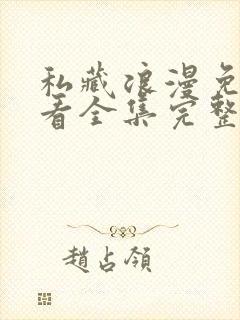 私藏浪漫免
看全集完整
趙占領